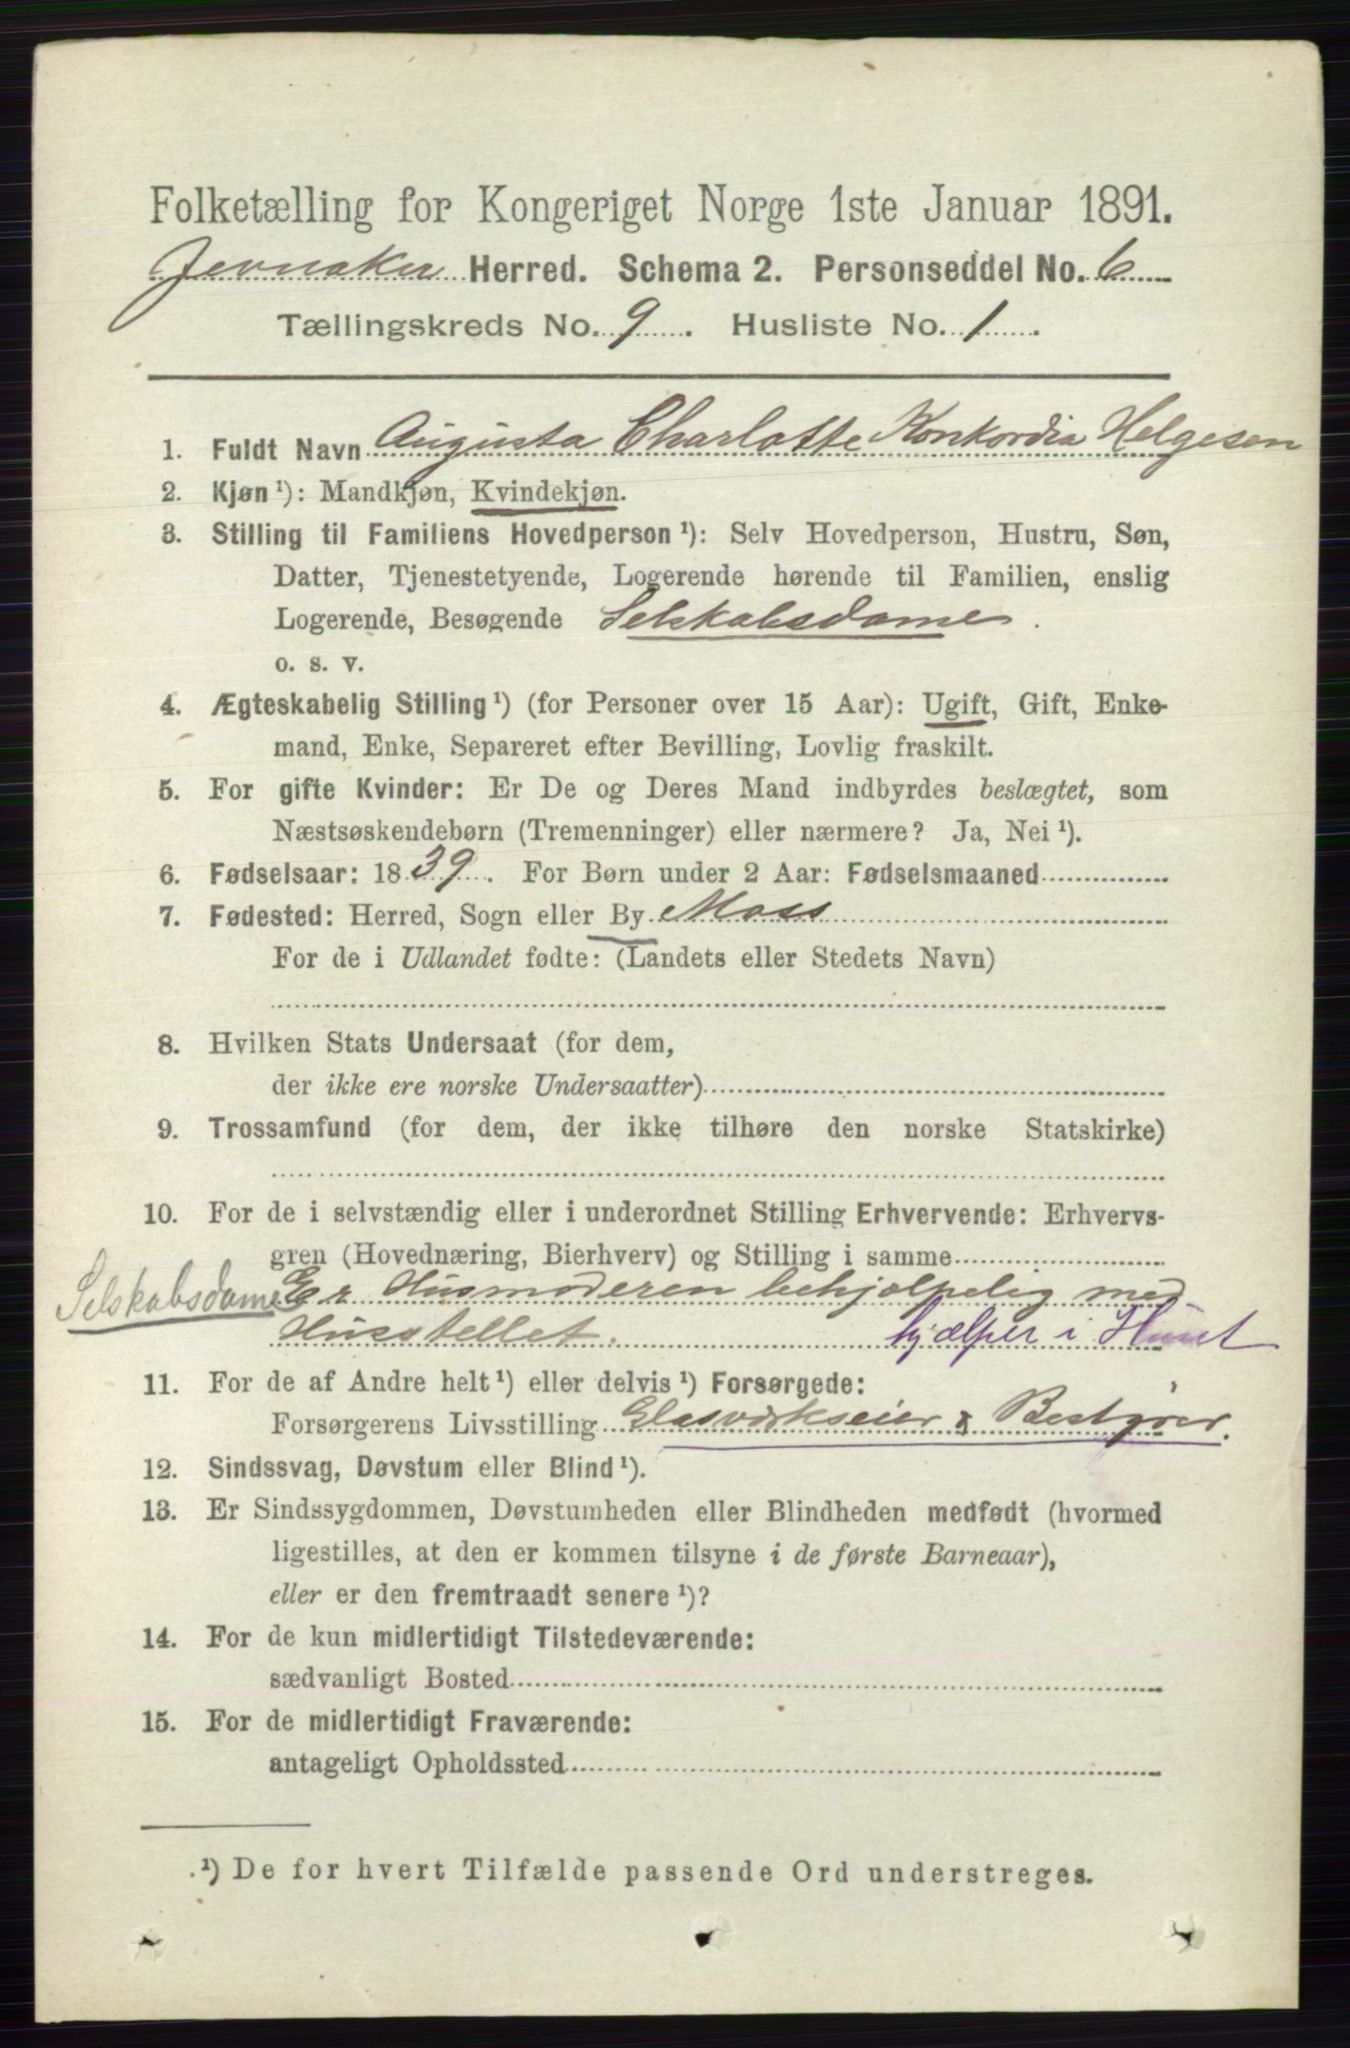 Folketælling for Kongeriget Norge 1ste Januar 1891.
Jevnaker Herred. Schema 2. Personseddel No. 6
Tællingskreds No. 9. Husliste No. 1.
1. Fuldt Navn Augusta Charlotte Konkordia Helgesen
2. Kjøn ¹): Mandkjøn, Kvindekjøn.
3. Stilling til Familiens Hovedperson ¹): Selv Hovedperson, Hustru, Søn,
Datter, Tjenestetyende, Logerende hørende til Familien, enslig
Logerende, Besøgende Selskabsdame.
o. s. v.
4. Ægteskabelig Stilling ¹) (for Personer over 15 Aar): Ugift, Gift, Enke-
mand, Enke, Separeret efter Bevilling, Lovlig fraskilt.
5. For gifte Kvinder: Er De og Deres Mand indbyrdes beslægtet, som
Næstsøskendebørn (Tremenninger) eller nærmere? Ja, Nei ¹).
6. Fødselsaar: 1839. For Børn under 2 Aar: Fødselsmaaned
7. Fødested: Herred, Sogn eller By Moss
For de i Udlandet fødte: (Landets eller Stedets Navn)
8. Hvilken Stats Undersaat (for dem,
der ikke ere norske Undersaatter)
9. Trossamfund (for dem, der ikke tilhøre den norske Statskirke)
10. For de i selvstændig eller i underordnet Stilling Erhvervende: Erhvervs-
gren (Hovednæring, Bierhverv) og Stilling i samme
Selskabsdame Er Husmoderen behjælpelig med
Husstellet. hjælper i Huset
11. For de af Andre helt ¹) eller delvis ¹) Forsørgede:
Forsørgerens Livsstilling Glasværkseier & Bestyrer.
12. Sindssvag, Døvstum eller Blind ¹).
13. Er Sindssygdommen, Døvstumheden eller Blindheden medfødt (hvormed
ligestilles, at den er kommen tilsyne i de første Barneaar),
eller er den fremtraadt senere ¹)?
14. For de kun midlertidigt Tilstedeværende:
sædvanligt Bosted
15. For de midlertidigt Fraværende:
antageligt Opholdssted
¹) De for hvert Tilfælde passende Ord understreges.